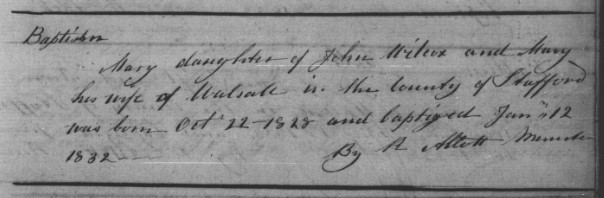 Baptism
Mary daughter of John Wilcox and Mary
his wife of Walsall in the County of Stafford
was born Oct 22 - 1828 and baptized Jany 12
1832 By R Allott Minister